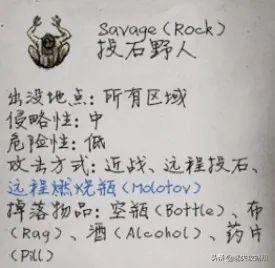 Savage (Rock)
投石野人
出没地点：所有区域
侵略性：中
危险性：低
攻击方式：近战、远程投石、
远程燃烧瓶（Molotov）
掉落物品：空瓶（Bottle）、布
（Rag）、酒（Alcohol）、药片
（Pill）